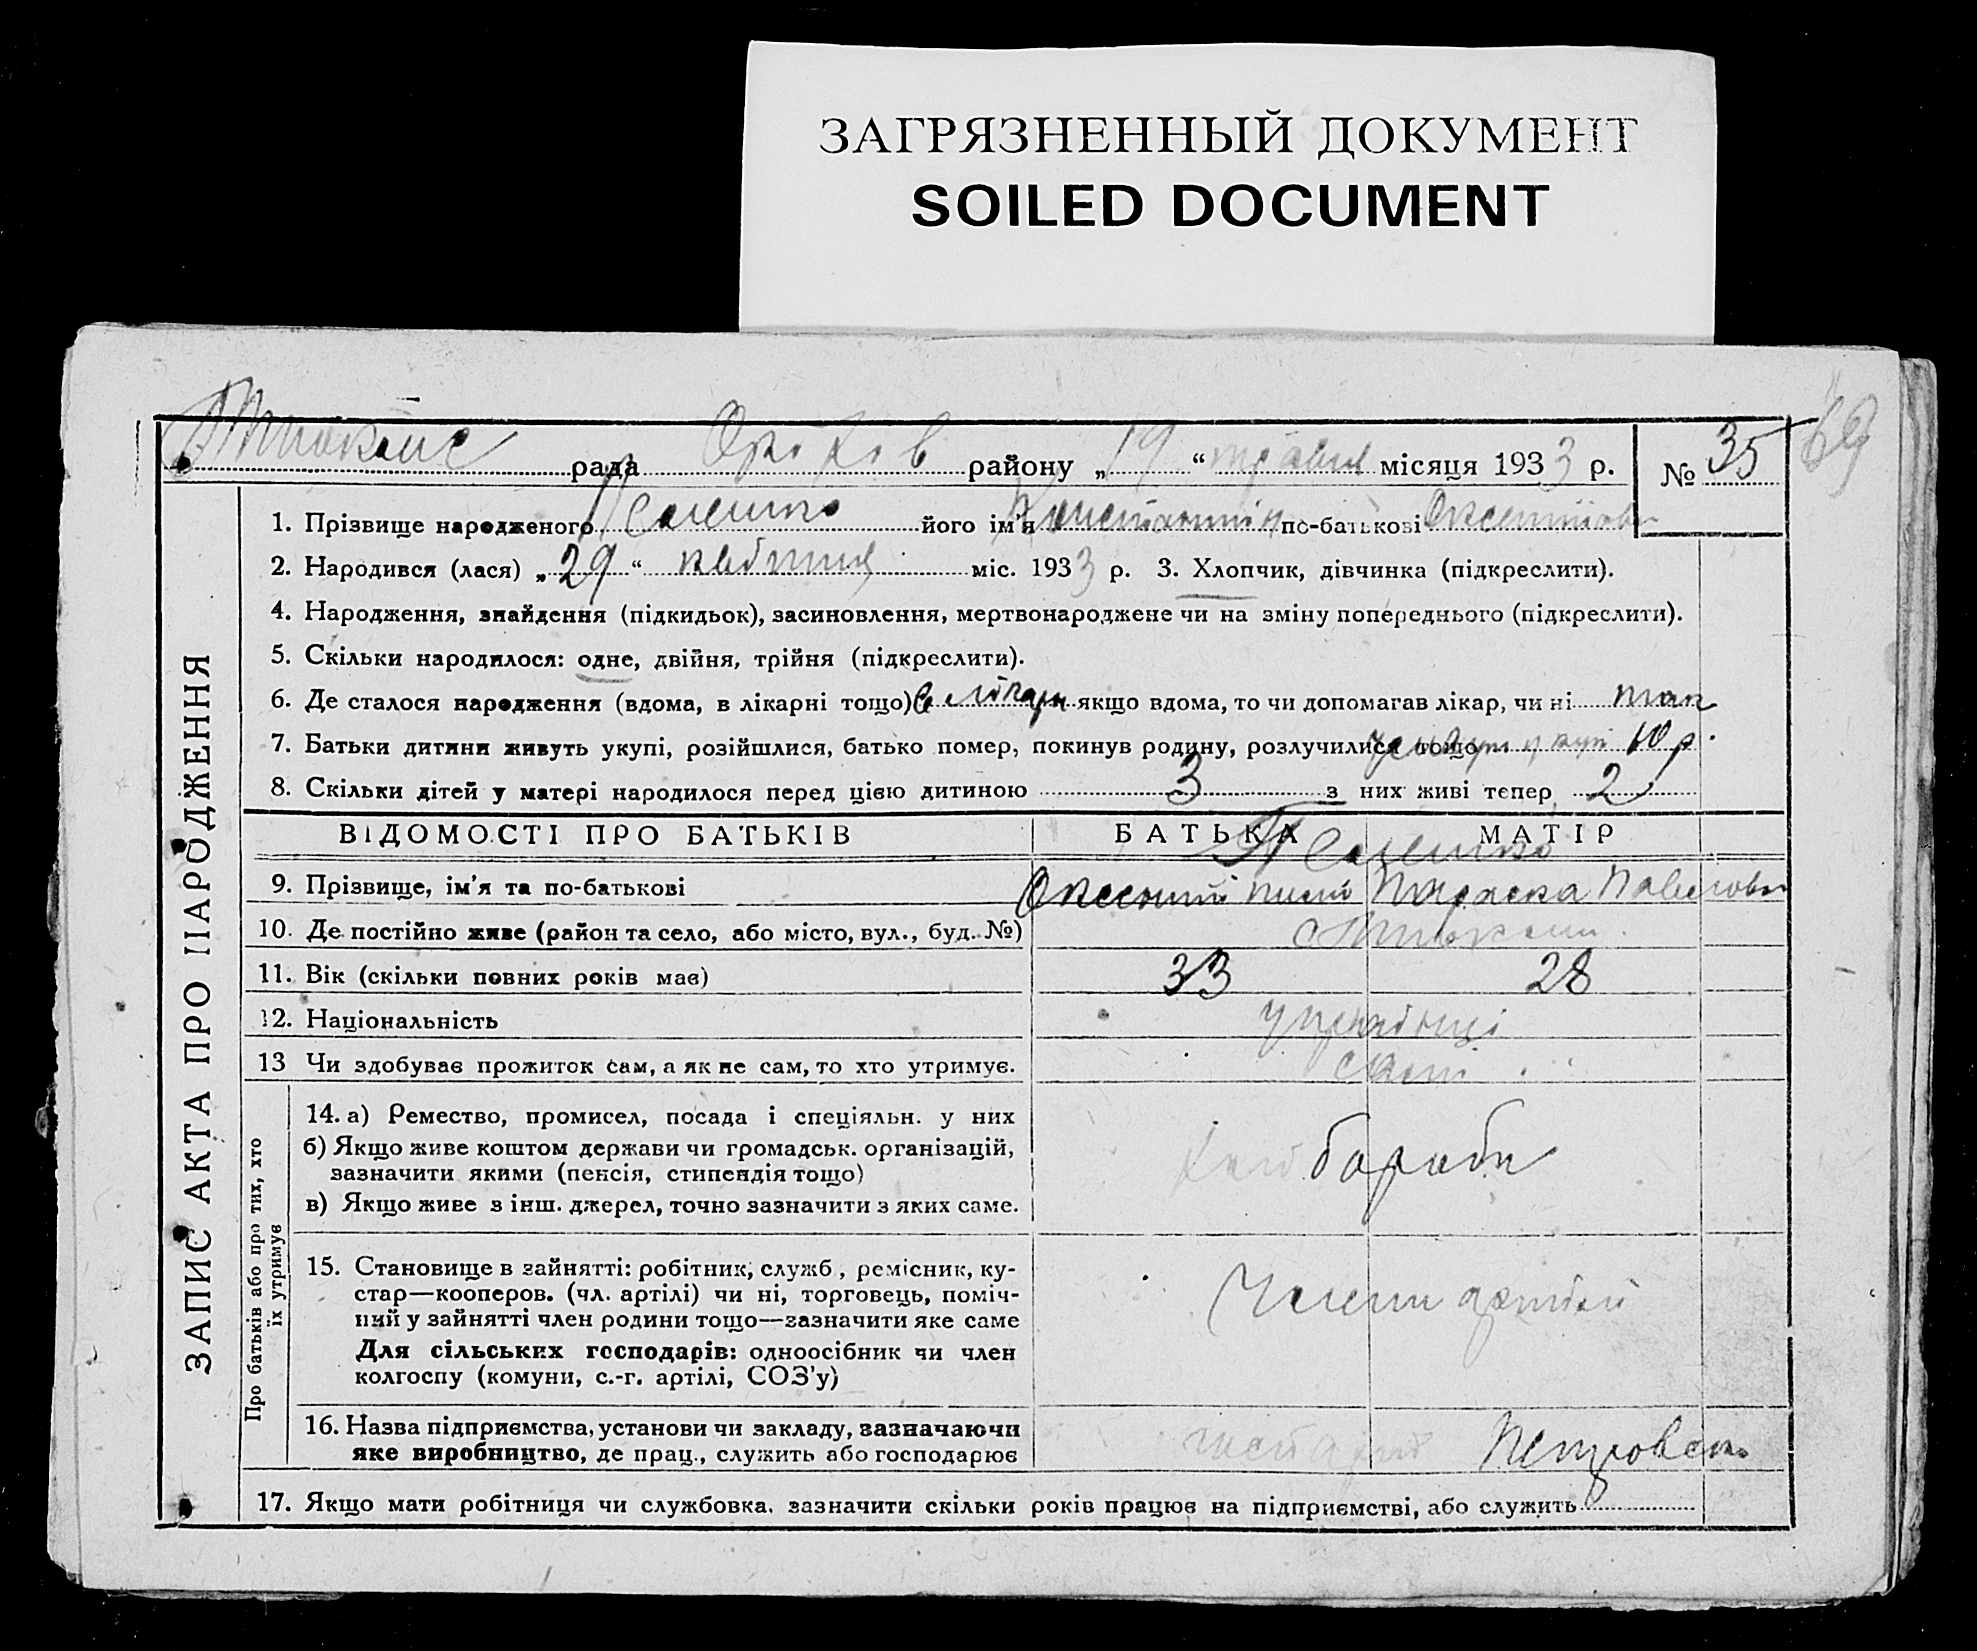 ЗАГРЯЗНЕННЫЙ ДОКУМЕНТ
SOILED DOCUMENT
69
рада Оріхов району „19“ травня місяця 1933 р. № 35
1. Прізвище народженого його ім'я Константин по-батькові
2. Народився (лася) „29“ квітня міс. 1933 р. 3. Хлопчик, дівчинка (підкреслити).
4. Народження, знайдення (підкидьок), засиновлення, мертвонароджене чи на зміну попереднього (підкреслити).
5. Скільки народилося: одне, двійня, трійня (підкреслити).
6. Де сталося народження (вдома, в лікарні тощо) в лікарн якщо вдома, то чи допомагав лікар, чи ні так
7. Батьки дитини живуть укупі, розійшлися, батько помер, покинув родину, розлучилися тощо живут укупі 10 р.
8. Скільки дітей у матері народилося перед цією дитиною 3 з них живі тепер 2
ЗАПИС АКТА ПРО НАРОДЖЕННЯ
ВІДОМОСТІ ПРО БАТЬКІВ БАТЬКА МАТІР
9. Прізвище, ім'я та по-батькові Параска Павловн
10. Де постійно живе (район та село, або місто, вул., буд. №)
11. Вік (скільки повних років має) 33 28
12. Національність українці
13 Чи здобуває прожиток сам, а як не сам, то хто утримує. самі
Про батьків або про тих, хто
їх утримує
14. а) Ремество, промисел, посада і спеціяльн. у них
б) Якщо живе коштом держави чи громадськ. організацій,
зазначити якими (пенсія, стипендія тощо)
в) Якщо живе з інш. джерел, точно зазначити з яких саме.
хлібороби
15. Становище в зайнятті: робітник, служб., ремісник, ку-
стар—кооперов. (чл. артілі) чи ні, торговець, поміч-
ний у зайнятті член родини тощо—зазначити яке саме
Для сільських господарів: одноосібник чи член
колгоспу (комуни, с.-г. артілі, СОЗ'у)
Члени артілі
16. Назва підприємства, установи чи закладу, зазначаючи
яке виробництво, де прац., служить або господарює
Петровськ
17. Якщо мати робітниця чи службовка, зазначити скільки років працює на підприємстві, або служить